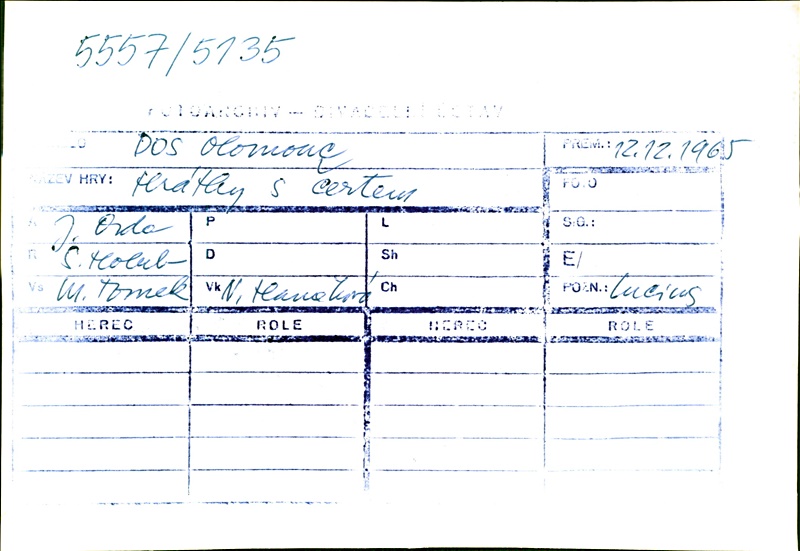 5557/5135
FOTOARCHIV — DIVADELNÍ ÚSTAV
DOS Olomouc PREM.: 12.12.1965
NÁZEV HRY: Hrátky s čertem FOTO
A J. Orda P L SIG.:
R S. Holub D Sh E/
Vs M. Tomek Vk N. Hanáková Ch POZN.: Lucius
HEREC ROLE HEREC ROLE